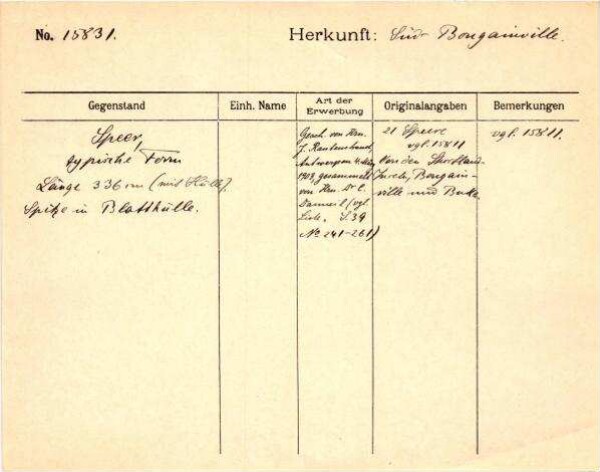 No. 15831.
Herkunft: Süd Bougainville.
Gegenstand
Einh. Name
Art der Erwerbung
Originalangaben
Bemerkungen
Speer,
typische Form
Länge 336 cm (mit Hülle).
Spitze in Blatthülle.
Gesch. von Hrn.
J. Rautenstrauch,
Antwerpen
1908, gesammelt
von Hrn. Dr.
(vgl.
Liste, S. 39
No 241-261)
21 Speere
vgl. 15811
Von den Shortland
Inseln, Bougain-
ville und Buka.
vgl. 15811.